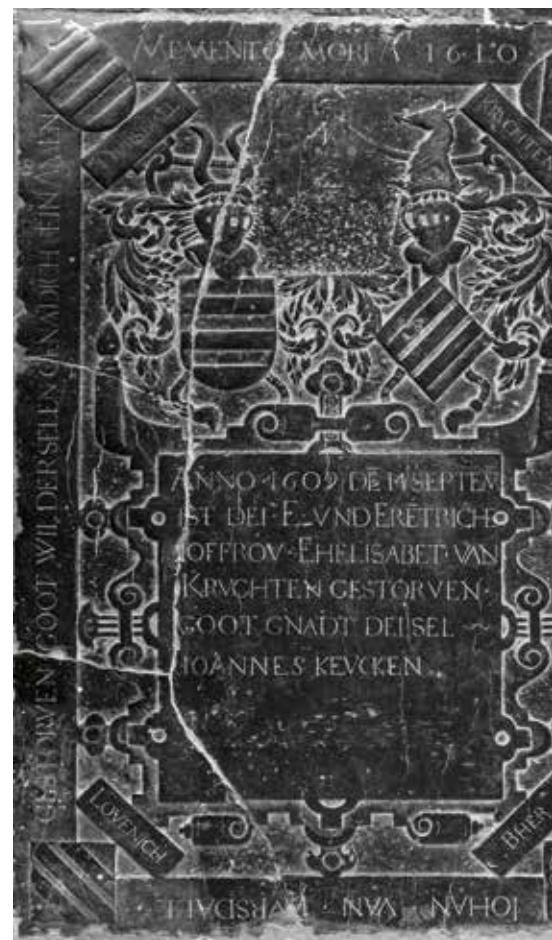 MEMENTO MORI A 1610
KRVCHTEN
ANNO · 1609 DE 14 SEPTEM
IST DEI · E · VND ERĒTRICH
IOFFROV · EHELISABET · VAN
KRVCHTEN GESTORVEN ·
GOOT GNADT DEI SEL
IOANNES KEVCKEN
LOVENICH
BAER
IOHAN · VAN
GESTORVEN GOOT WIL DER SELEN GENADICH EIN AMEN